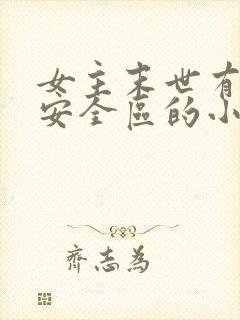 女主末世有
安全區的小
齊志為